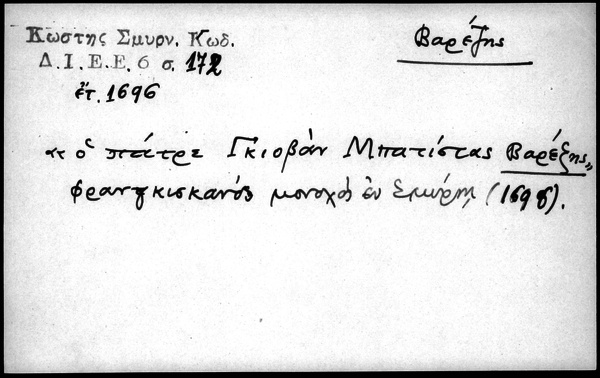 Κωστης Σμυρν. Κωδ.
Βαρέζης
Δ.Ι.Ε.Ε. 6 σ. 172
ἔτ. 1696
« ὁ πάτρε Γκιοβὰν Μπατίστας Βαρέζης»
φραγκισκανός μοναχὸς ἐν Σμύρνῃ (1696).